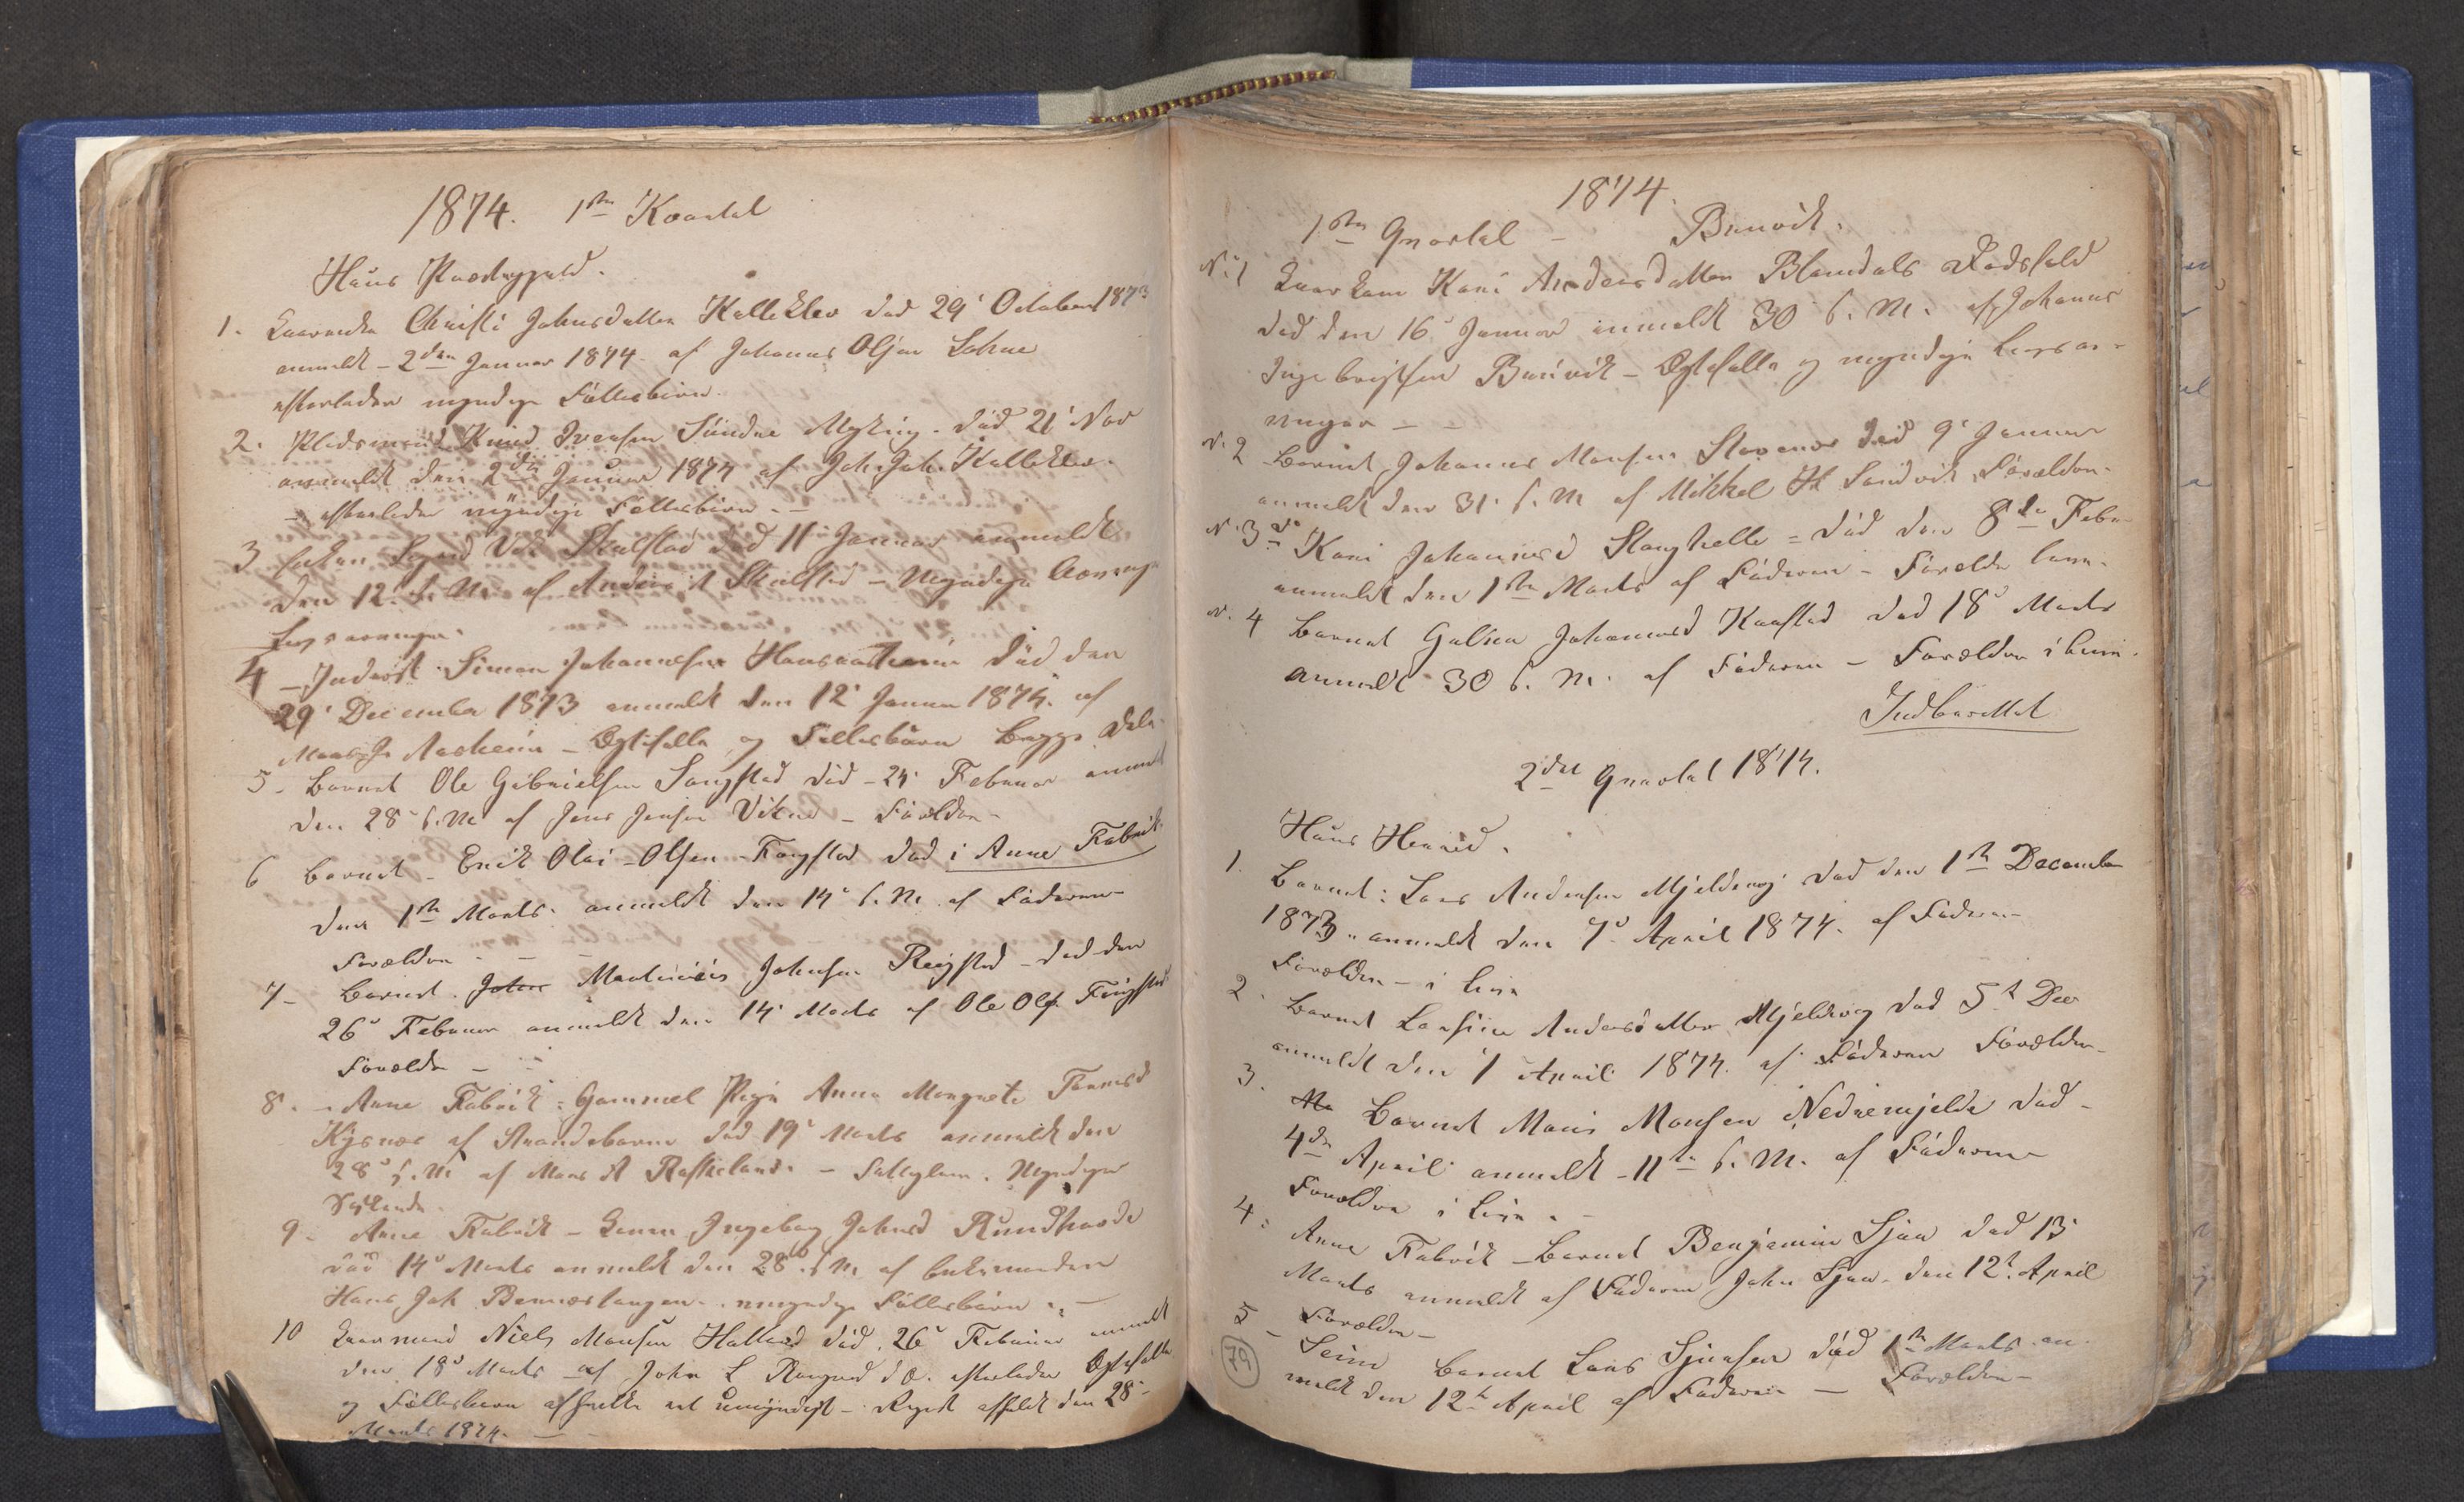 1874. 1ste Kvartal
Haus Præstegjeld.
1. Kaarenke Christi Johnsdatter Kalleklev død 29' October 1873
anmeldt - 2den Januar 1874 af Johannes Olsen Lohne
efterlader myndige Fællesbørn.
2. Pladsmand Knud Iversen Søndre Myking. død 21' Nov
anmeldt den 2den Januar 1874 af Joh. Joh. Kalleklev.
- efterlader myndige Fællesbørn. -
3 Enken Sygni Vik Skulstad død 11' Januar anmeldt
den 12' s. M. af Anders A Skulstad - Myndige
Livsarvinger.
4 - Inderst Simon Johannesen død den
29' December 1873 anmeldt den 12' Januar 1874. af
Mons J. - Egtefælle og Fællesbørn begge
5 - Barnet Ole Gabrielsen Songstad død - 24' Februar anmeldt
den 28' s. M. af Jens Jensen Vikne - Forældre -
6 Barnet - Erik Olai - Olsen - Fougstad død i Arne Fabrik
den 1ste Marts. anmeldt den 14' s. M. af Faderen -
Forældre - - -
7 - Barnet. John Martinius Johnsen Reigstad - død den
26' Februar anmeldt den 14' Marts af Ole Ols.
Forældre - -
8. - Arne Fabrik: Gammel Pige Anna Margrete
af Strandebarm død 19' Marts anmeldt den
28' s. M af Mons A - . Myndige
Sydskende.
9 - Arne Fabrik - Konen Ingeborg Johnsd Rundhovde
død 14' Marts anmeldt den 28' s. M. af
Hans Joh - umyndige Fællesbørn. -
10 Kaarmand Niels Monsen Halland død. 26' Februar anmeldt
den 18' Marts af John L efterlader Egtefælle
og Fællesbørn af hvilke et umyndigt - Skyds affeldt den 28' -
Marts 1874. -
1874.
1ste Qvartal - Bruvik.
N. 1 Kaarkone Kari Andersdatter Blomdals
død den 16' Januar anmeldt 30 s. M. af Johannes
Ingebrigtsen Bruvik - Egtefælle og myndige Livsar-
vinger - -
N. 2 Barnet Johannes Monsen Stavenes død 9' Januar
anmeldt den 31' s. M af Mikkel H Sandvik Forældre -
N. 3 do Kari Johannesd Stanghelle = død den 8de Febr
anmeldt den 1ste Marts af Faderen - Forældre
N. 4 Barnet Galina Johannesd død 18' Marts
anmeldt 30 s. M. af Faderen - Forældre i Live.
Indberettet
2det Qvartal 1874.
Haus Herred.
1. Barnet: Lars Andersen Mjeldevig død den 1ste December
1873. anmeldt den 7' April 1874. af Faderen -
Forældre - i Live
2. Barnet Larsine Andersdatter Mjeldevig død 5t Dec
anmeldt den 7 April 1874. af Faderen Forældre -
3. Ma Barnet Mons Monsen Nedremjelde død -
4de April anmeldt - 11te s. M. af Faderen
Forældre i Live. -
4. Arne Fabrik - Barnet Benjamin Sjau død 13'
Marts anmeldt af Faderen John Sjau - den 12t. April
Forældre -
5 - Seim Barnet Lars Sjursen død 1ste Marts. an-
meldt den 12t April af Faderen - Forældre -
79